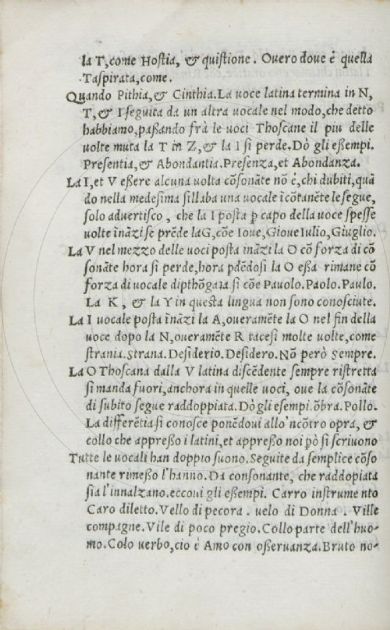 la T, come Hostia, & quistione. Overo dove è quella
T aspirata, come.
Quando Pithia, & Cinthia. La voce latina termina in N,
T, & I seguita da un altra vocale nel modo, che detto
habbiamo, paßando frà le voci Thoscane il piu delle
volte muta la T in Z, & la I si perde. Dò gli eßempi.
Presentia, & Abondantia. Presenza, et Abondanza.
La I, et V eßere alcuna volta cõsonãte nõ è, chi dubiti, quã
do nella medesima sillaba una vocale ĩcõtanẽte le segue,
solo advertisco, che la I posta p capo della voce speße
volte inãzi se prẽde la G, cõe Iove, Giove Iulio, Giuglio.
La V nel mezzo delle voci posta inãzi la O cõ forza di cõ
sonãte hora si perde, hora pdẽdosi la O eßa rimane cõ
forza di vocale dipthõgaia sì cõe Pauolo. Paolo. Paulo.
La K, & la Y in questa lingua non sono conosciute.
La I vocale posta inãzi la A, overamẽte la O nel fin della
voce dopo la N, overamẽte R tacesi molte volte, come
strania. Strana. Desiderio. Desidero. Nõ però sempre.
La O Thoscana dalla V latina discẽdente sempre ristretta
si manda fuori, anchora in quelle voci, ove la cõsonãte
di subito segue raddoppiata. Dò gli esempi. õbra. Pollo.
La differẽtia si conosce ponẽdovi allo'ncõtro opra, &
collo che appreßo i latini, et appreßo noi pò si scrivono
Tutte le vocali han doppio suono. Seguite da semplice cõso
nante rimeßo l'hanno. Da consonante, che raddopiata
sia l'innalzano. eccovi gli eßempi. Carro instrumento
Caro diletto. Vello di pecora. velo di Donna. Ville
compagne. Vile di poco pregio. Collo parte dell'huo-
mo. Colo verbo, cio è Amo con oßervanza. Bruto no-